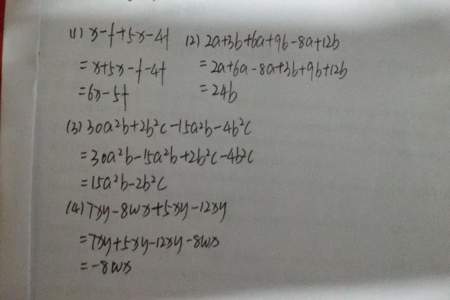 (1) x-f+5x-4f (2) 2a+3b+6a+9b-8a+12b
=x+5x-f-4f =2a+6a-8a+3b+9b+12b
=6x-5f =24b
(3) 30a²b+2b²c-15a²b-4b²c
=30a²b-15a²b+2b²c-4b²c
=15a²b-2b²c
(4) 7xy-8wx+5xy-12xy
=7xy+5xy-12xy-8wx
=-8wx